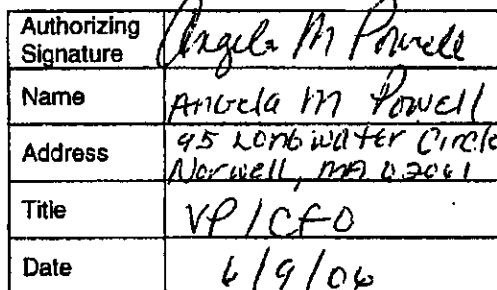 Authorizing Signature Angela M Powell
Name Angela M Powell
Address 95 Longwater Circle
Norwell, MA 02061
Title VP/CFO
Date 6/9/06